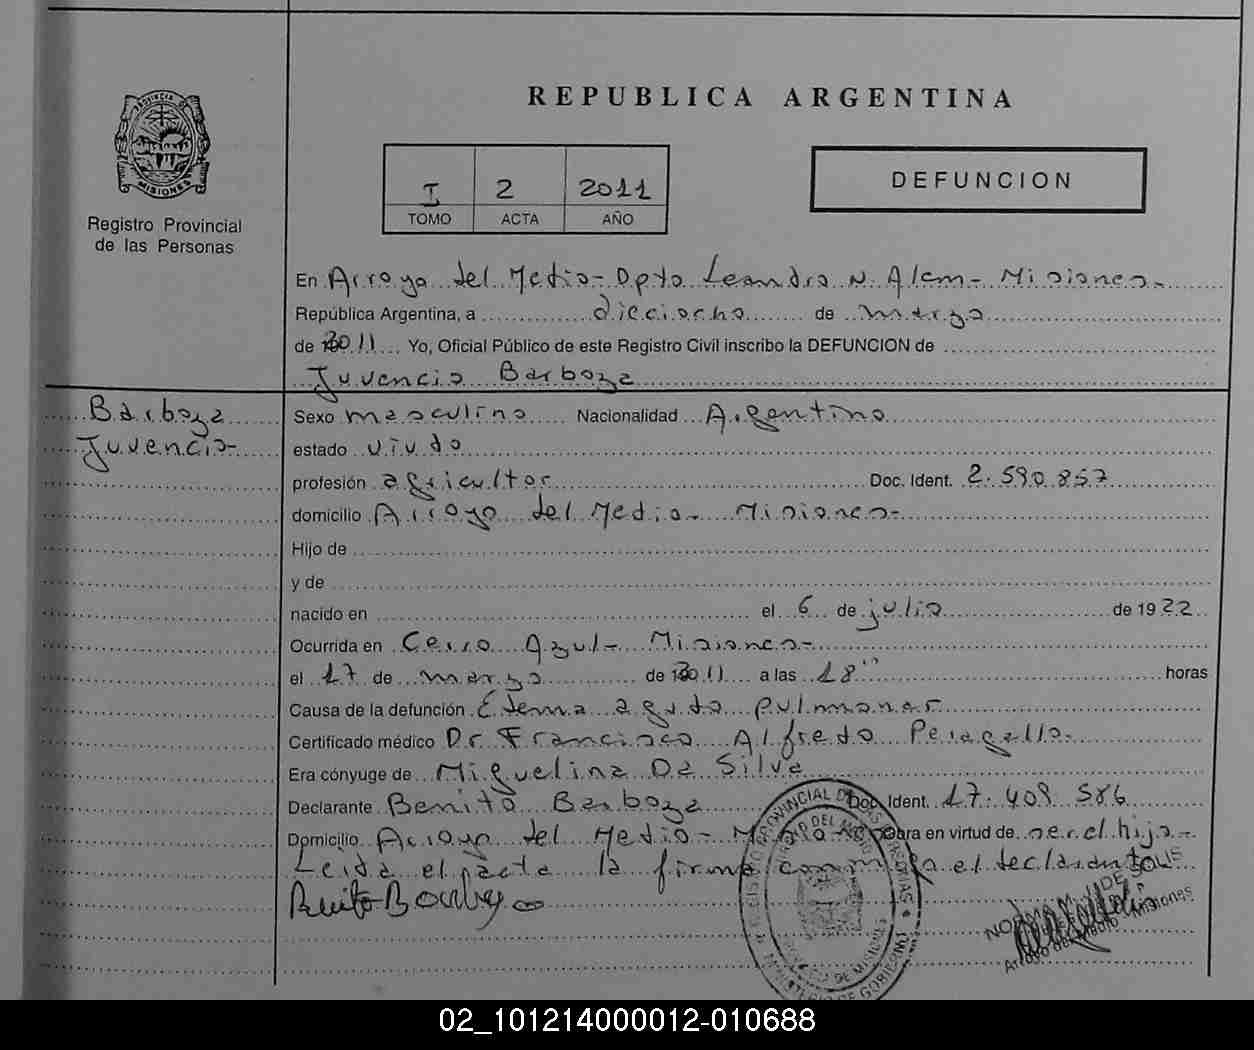 REPUBLICA ARGENTINA
PROVINCIA DE
MISIONES
Registro Provincial
de las Personas
I 2 2011
TOMO ACTA AÑO
DEFUNCION
En Arroyo del Medio - Dpto Leandro N. Alem - Misiones -
República Argentina, a dieciocho de marzo
de 2011 Yo, Oficial Público de este Registro Civil inscribo la DEFUNCION de
Juvencio Barboza
Barboza
Juvencio -
Sexo masculino Nacionalidad Argentino
estado viudo
profesión agricultor Doc. Ident. 2.590.857
domicilio Arroyo del Medio - Misiones -
Hijo de
y de
nacido en el 6 de julio de 1922
Ocurrida en Cerro Azul - Misiones -
el 17 de marzo de 2011 a las 18 horas
Causa de la defunción Edema agudo pulmonar
Certificado médico Dr Francisco Alfredo
Era cónyuge de Miguelina Da Silva
Declarante Benito Barboza Doc. Ident. 17.409.586
Domicilio Arroyo del Medio - Obra en virtud de ser el hijo -
Leida el acta la firma el declarante
Benito Barboza
NORMA
Arroyo del Medio Misiones
02_101214000012-010688